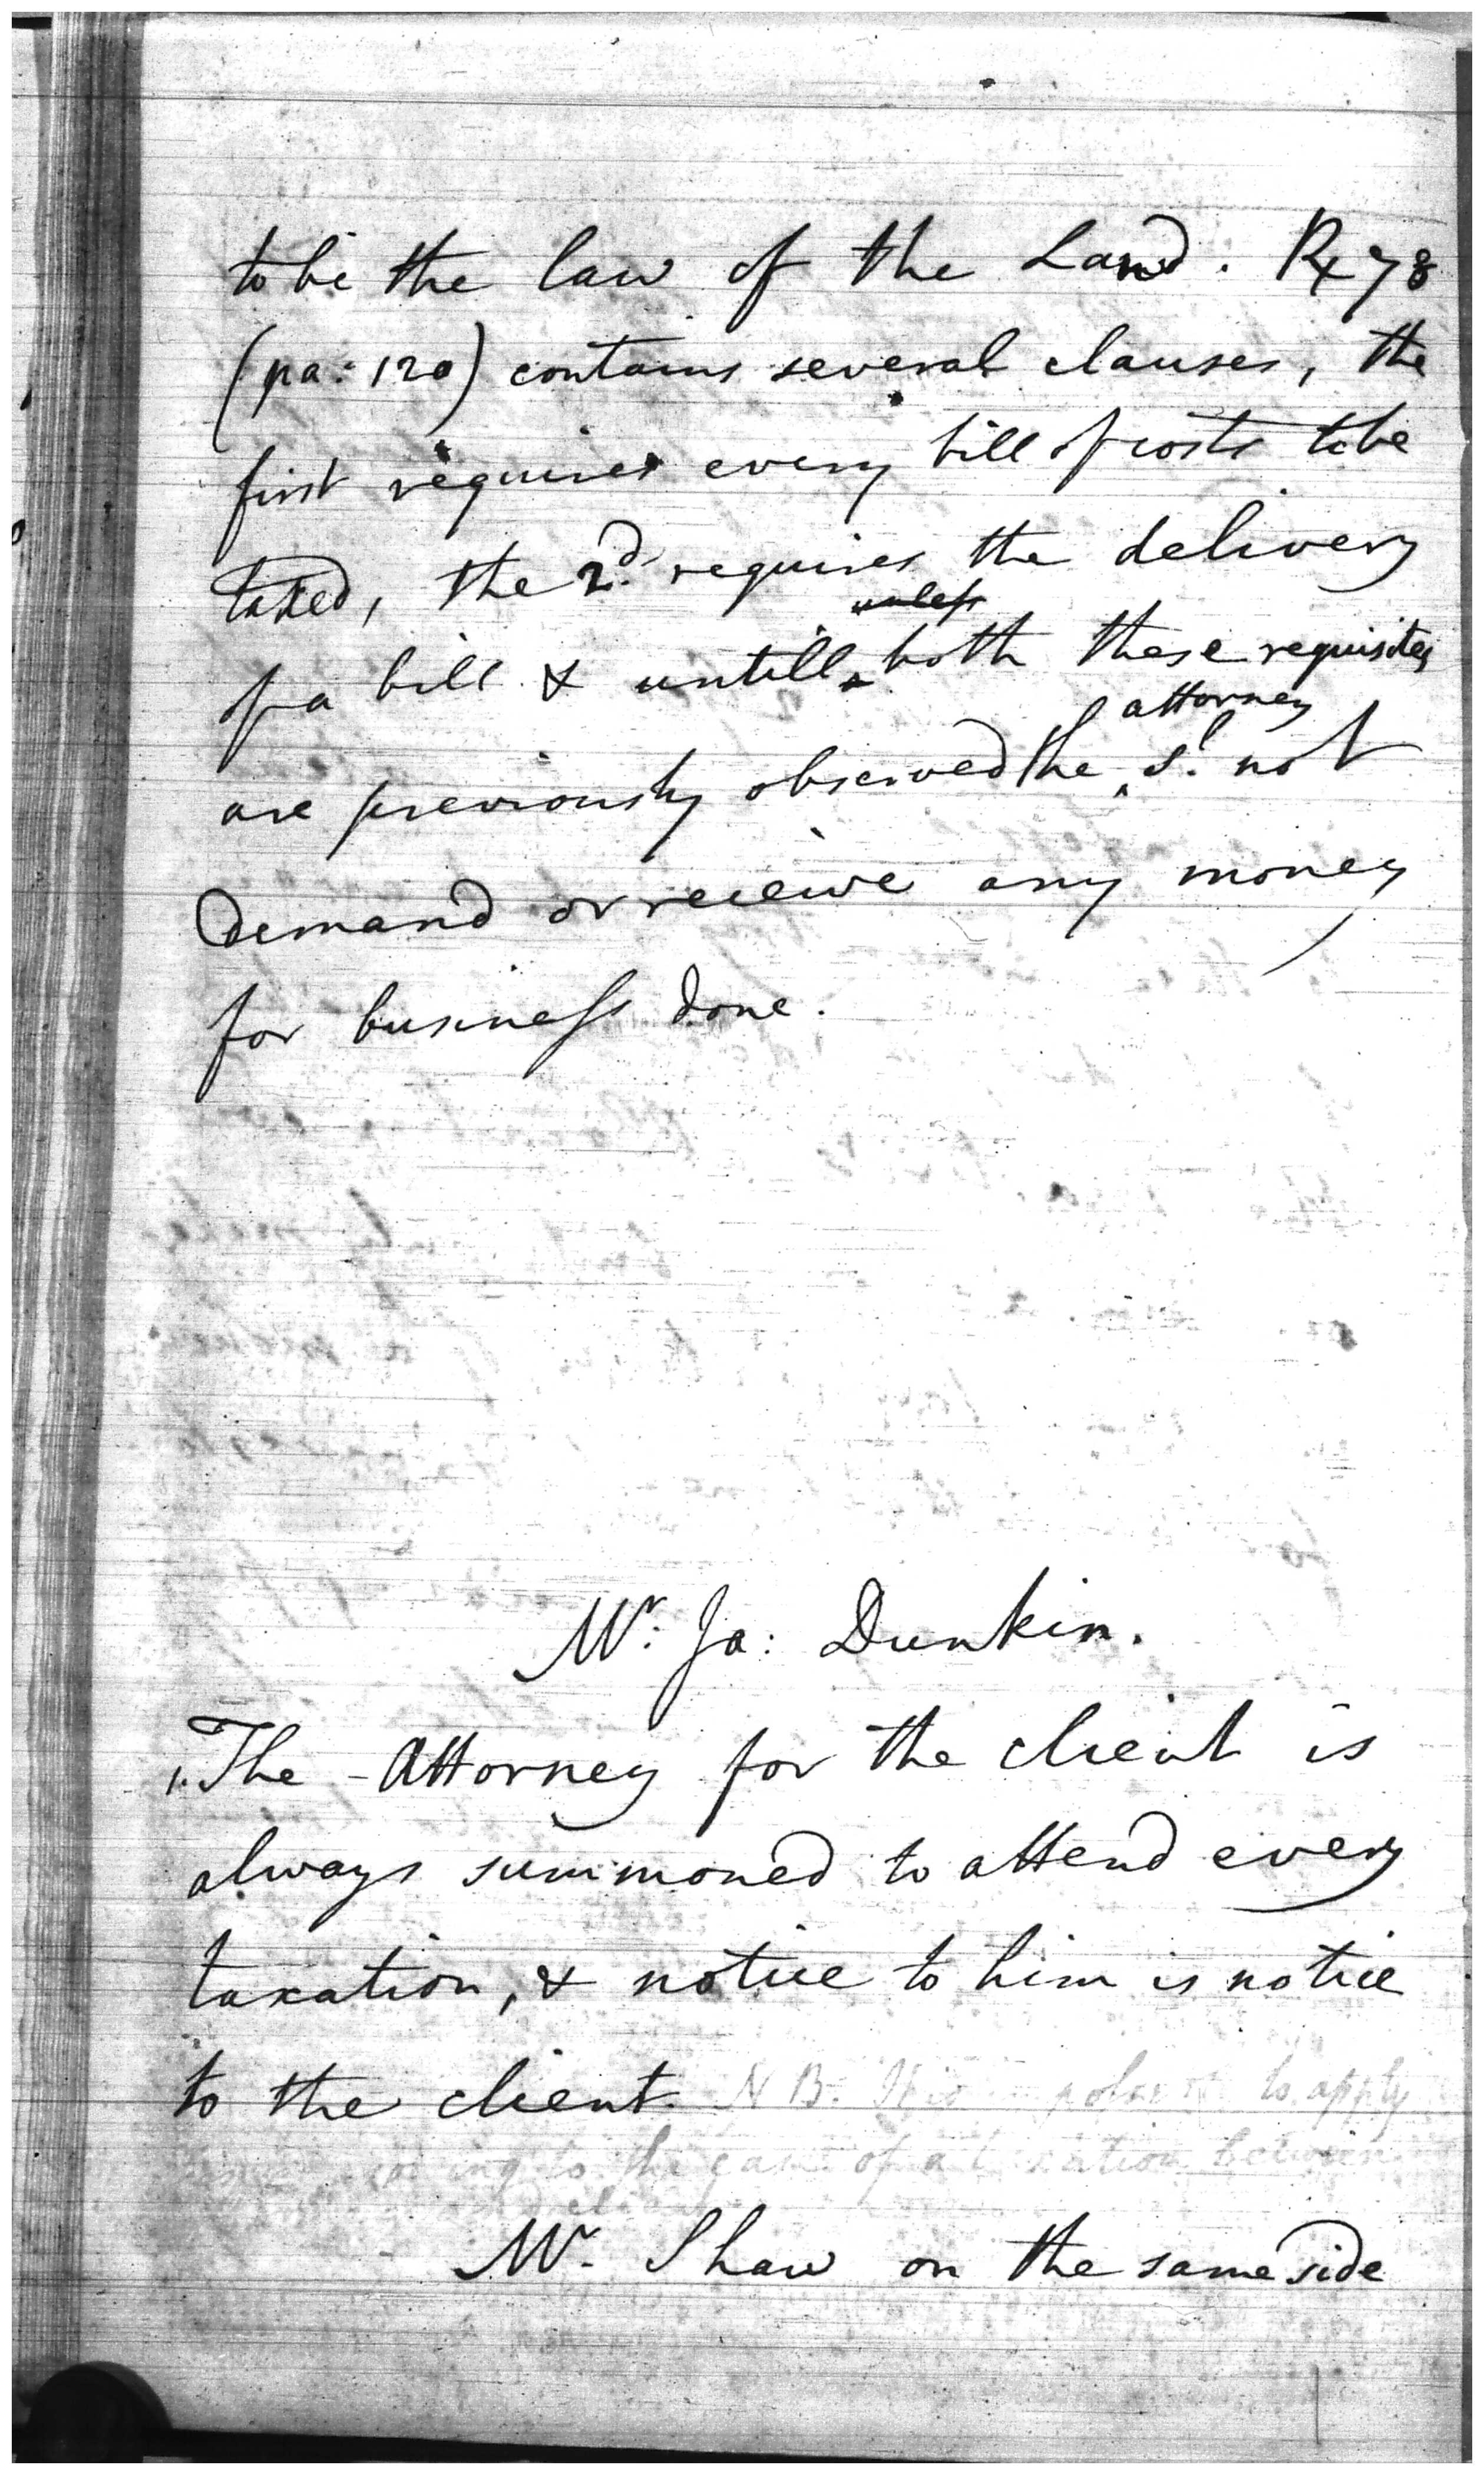 to be the law of the Land. Rx 78
(pa: 120) contains several clauses, the
first requires every bill of costs to be
taxed, the 2d. requires the delivery
unless
of a bill & untill both these requisites
attorney
are previously observed the sl. not
demand or receive any money
for business done.
Mr: Ja: Dunkin.
1. The Attorney for the client is
always summoned to attend every
taxation, & notice to him is notice
to the client. N B. to apply
to the of a between
Mr. Shaw on the same side